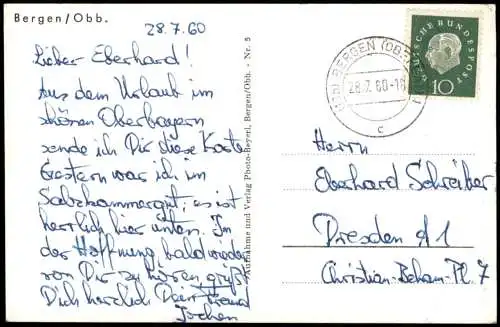 Bergen/Obb.
28.7.60
Lieber Eberhard!
Aus dem Urlaub im
schönen Oberbayern
sende ich Dir diese Karte
Gestern war ich im
Salzkammergut; es ist
herrlich hier unten. In
der Hoffnung, bald wieder
von Dir zu hören grüßt
Dich herzlich Dein Freund
Jochen
Aufnahme und Verlag Photo-Beyerl, Bergen/Obb. - Nr. 5
BERGEN (OB
28.7.60-18
c
DEUTSCHE BUNDESPOST
10
Herrn
Eberhard Schreiber
Dresden A1
Christian-Beham-Pl. 7